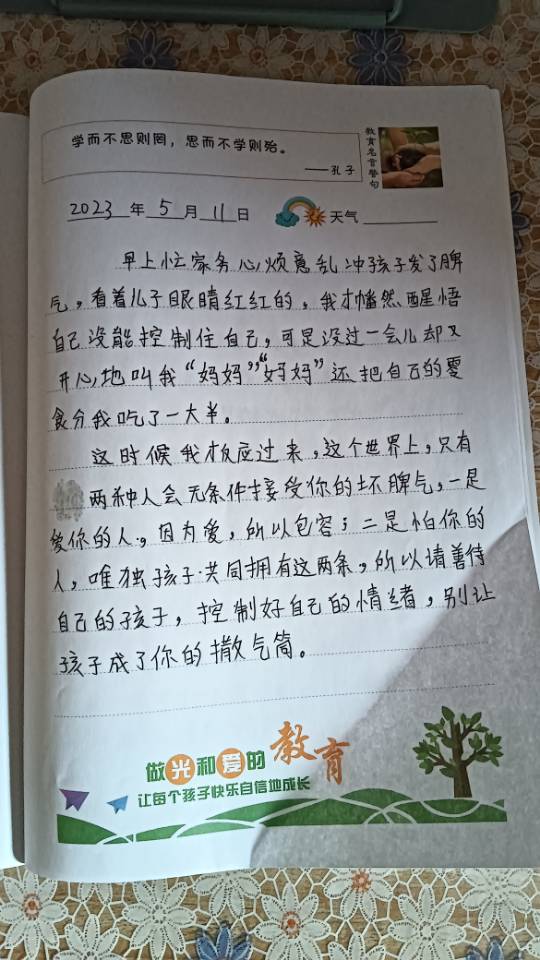 学而不思则罔，思而不学则殆。
——孔子
教育名言警句
2023年5月11日 天气
早上忙家务心烦意乱冲孩子发了脾
气，看着儿子眼睛红红的，我才幡然醒悟
自己没能控制住自己，可是没过一会儿却又
开心地叫我“妈妈”，“妈妈”还把自己的零
食分我吃了一大半。
这时候我才反应过来，这个世界上，只有
两种人会无条件接受你的坏脾气，一是
爱你的人，因为爱，所以包容；二是怕你的
人，唯独孩子共同拥有这两条，所以请善待
自己的孩子，控制好自己的情绪，别让
孩子成了你的撒气筒。
做光和爱的教育
让每个孩子快乐自信地成长